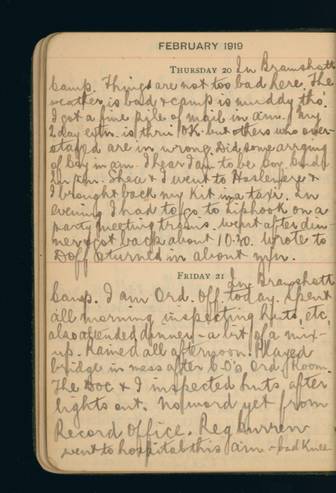 FEBRUARY 1919
THURSDAY 20 In Bramshott
Camp. Things are not too bad here. The
weather is bad & camp is muddy tho.
I got a fine pile of mail in a.m. My
2 day extn. is thru' OK. but others who over
stayed are in wrong. Did some arging
of Coy in a.m. I hear I am to be Coy.
in p.m. Shea & I went to Haslemere &
I brought back my kit in a taxi. In
evening I had to go to Liphook on a
party meeting trains. went after din
ner & got back about 10.30. Wrote to
Doff & turned in about m/n.
FRIDAY 21 In Bramshott
Camp. I am Ord. Off. today. Spent
all morning inspecting huts, etc
also attended dinner - a bit of a mix-
up. Rained all afternoon. Played
bridge in mess after C.O's Ord. Room.
The Doc & I inspected huts after
lights out. No word yet from
Record Office. Reg Burren
went to hospital this a.m. - bad knee